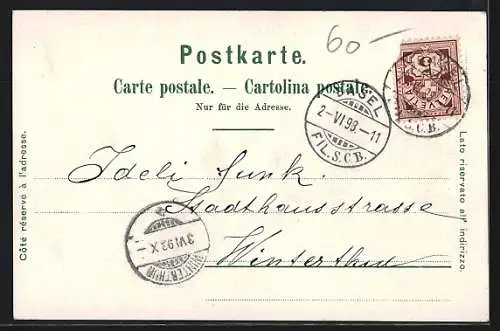 60—
Postkarte.
Carte postale. — Cartolina postale.
Nur für die Adresse.
BASEL
2-VI 98.-11
FIL. S.C.B.
HELVETIA
S.C.B.
Côté réservé à l'adresse.
Lato riservato all' indirizzo.
Ideli Funk.
Stadthausstrasse
Winterthur
WINTERTHUR
3 VI 98 X